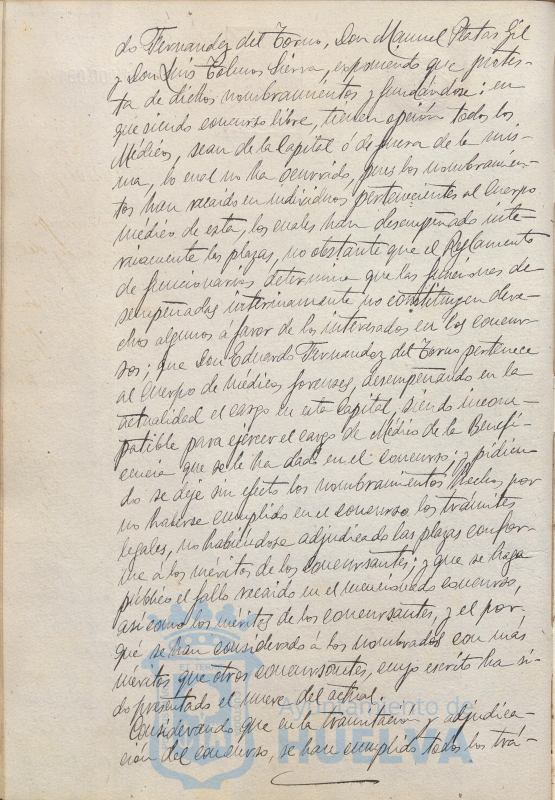 do Fernandez del Torno, Don Manuel Matas Gil
y Don Luis Tolmos Sierra, exponiendo que protes-
ta de dichos nombramientos y fundándose: en
que siendo concurso libre, tienen opción todos los
Médicos, sean de la Capital ó de fuera de la mis-
ma, lo cual no ha ocurrido, pues los nombramien-
tos han recaido en individuos pertenecientes al Cuerpo
médico de esta, los cuales han desempeñado inte-
rinamente las plazas, no obstante que el Reglamento
de funcionarios determina que las funciones de
sempeñadas interinamente no constituyen dere-
chos algunos á favor de los interesados en los concur-
sos; que Don Eduardo Fernandez del Torno pertenece
al Cuerpo de Médicos forenses, desempeñando en la
actualidad el cargo en esta Capital, siendo incom-
patible para ejercer el cargo de Médico de la Benefi-
cencia que se le ha dado en el concurso; y pidien
do se deje sin efecto los nombramientos hechos, por
no haberse cumplido en el concurso los trámites
legales, no habiéndose adjudicado las plazas confor-
me á los méritos de los concursantes, y que se haga
público el fallo recaido en el mencionado concurso,
así como los méritos de los concursantes, y el por-
qué se han considerado á los nombrados con más
méritos que otros concursantes, cuyo escrito ha si-
do presentado el nueve del actual.
Considerando que en la tramitacion y adjudica-
cion del concurso, se han cumplido todos los trá-
Ayuntamiento de
HUELVA